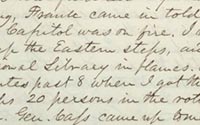 Frank came in told
Capitol was on fire. I
up the Eastern steps, and
onal Library in flames.
utes past 8 when I got the
ps 20 persons in the rot
Gen Cass came up